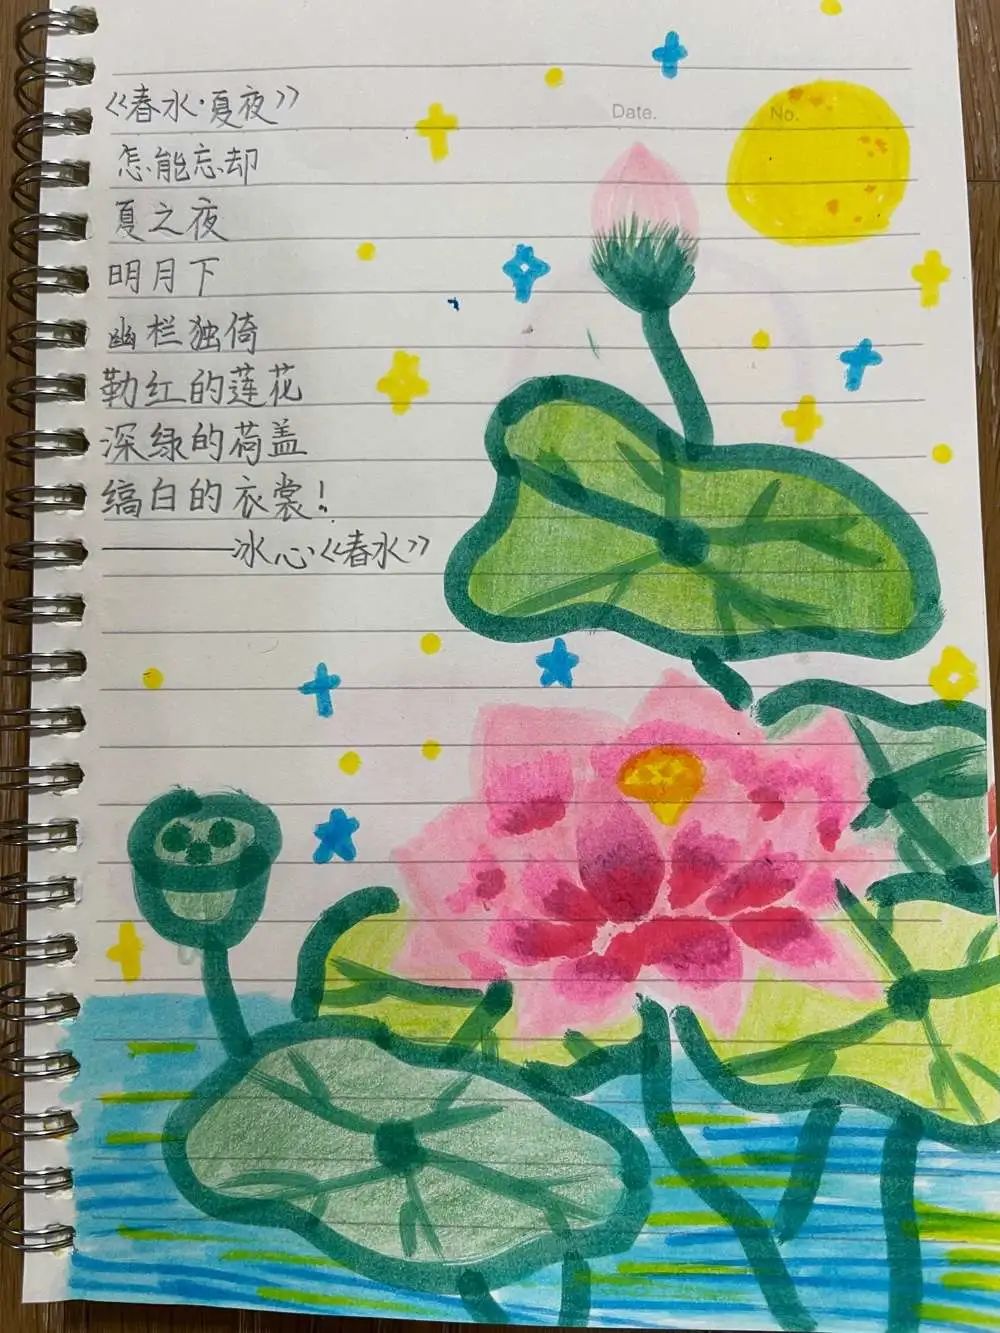 《春水·夏夜》
Date.
No.
怎能忘却
夏之夜
明月下
幽栏独倚
勒红的莲花
深绿的荷盖
缟白的衣裳！
——冰心《春水》